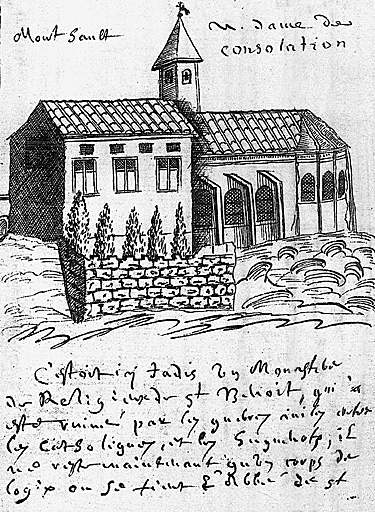 Mont Sault
N. dame de
consolation
C'estoit icy Jadis un Monastere
de Religieux de St Benoit, qui a
esté ruiné par les guerres civiles entre
les Catholiques, et les Huguenots, il
ne reste maintenant qu'un corps de
logix ou se tient l'Abbé de St